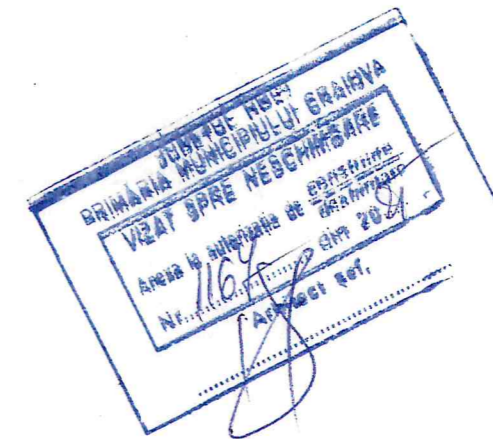 JUDEȚUL DOLJ
PRIMĂRIA MUNICIPIULUI CRAIOVA
VIZAT SPRE NESCHIMBARE
Anexa la autorizația de construire
desființare
Nr. 1164 din 20
Arhitect șef,